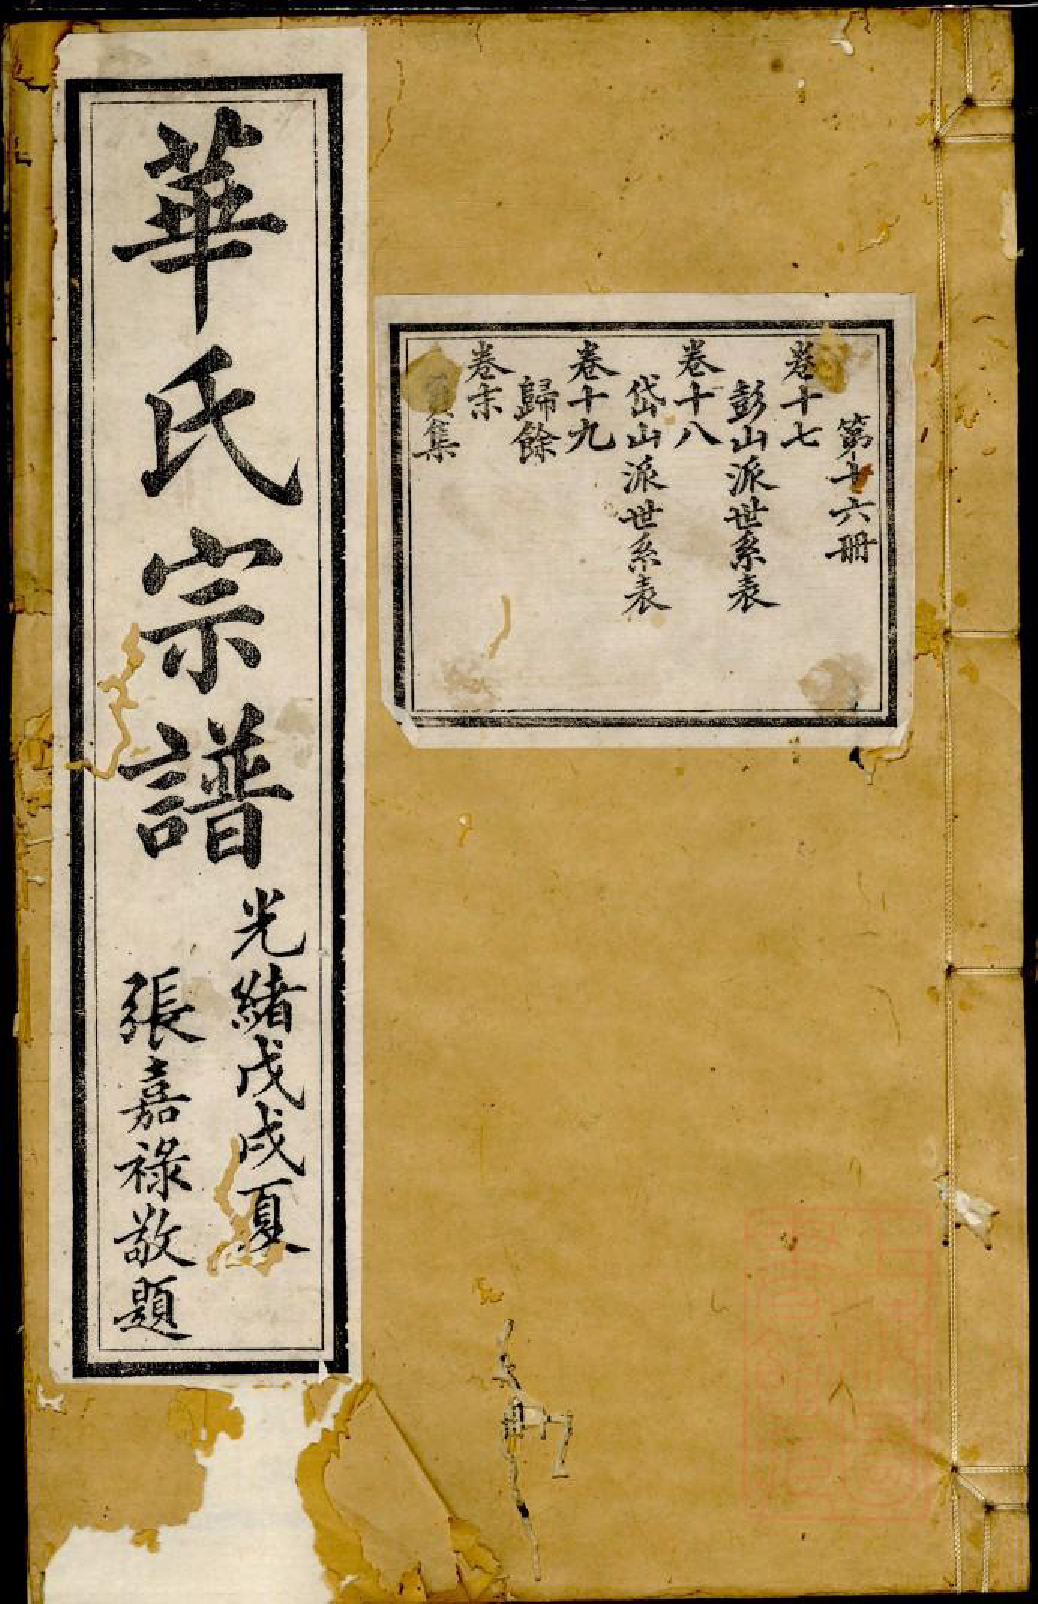 第十六册
卷十七
彭山派世系表
卷十八
岱山派世系表
卷十九
歸餘
卷末
集
華氏宗譜
光緒戊戌夏
張嘉祿敬題